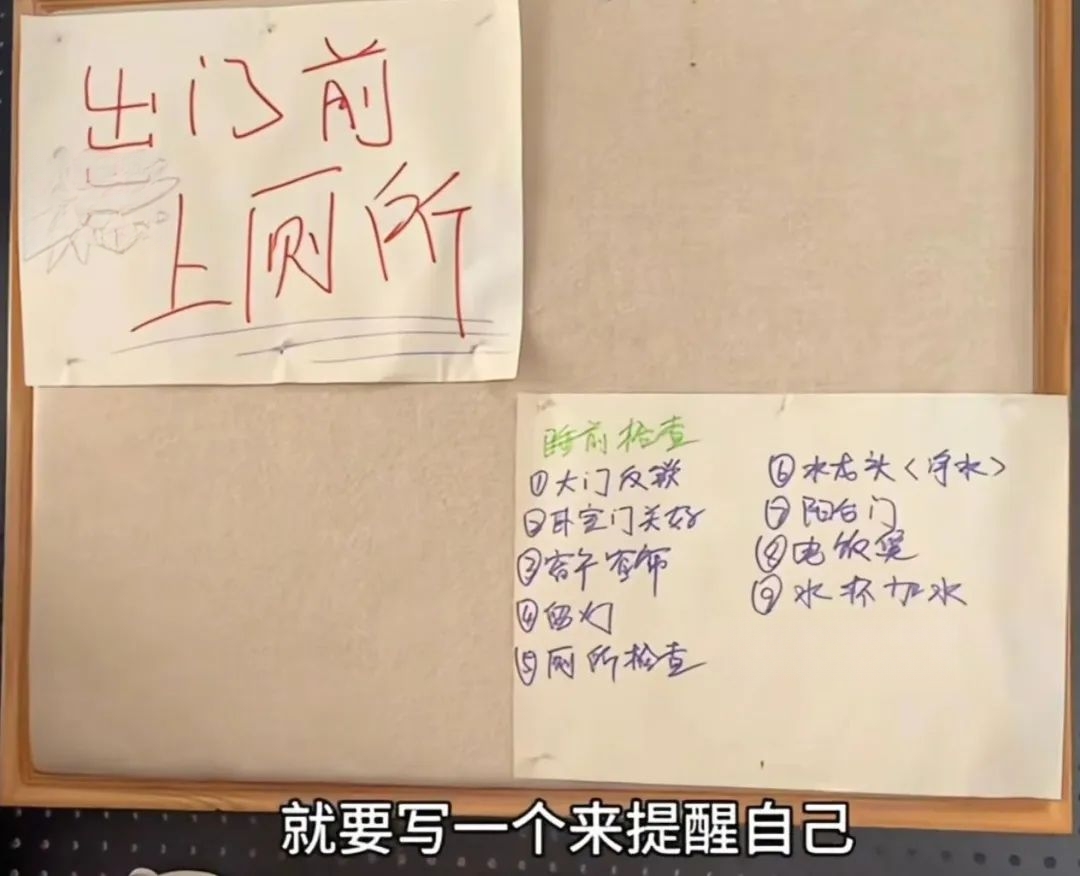 出门前
上厕所
睡前检查
①大门反锁
②卧室门关好
③窗
④留灯
⑤厕所检查
⑥水龙头（净水）
⑦阳台门
⑧电饭煲
⑨水杯加水
就要写一个来提醒自己